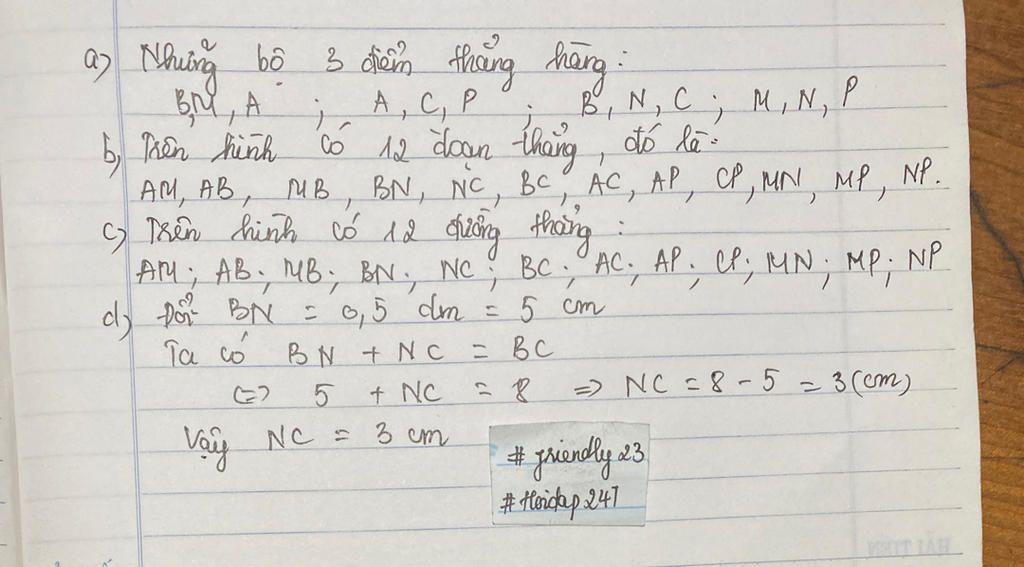 a) Những bộ 3 điểm thẳng hàng:
B,M, A ; A, C, P ; B, N, C ; M, N, P
b, Trên hình có 12 đoạn thẳng, đó là:
AM, AB, MB, BN, NC, BC, AC, AP, CP, MN, MP, NP.
c) Trên hình có 12 đường thẳng:
AM; AB; MB; BN; NC; BC; AC; AP; CP; MN; MP; NP
d) Đổi BN = 0,5 dm = 5 cm
Ta có BN + NC = BC
<=> 5 + NC = 8 => NC = 8 - 5 = 3 (cm)
Vậy NC = 3 cm
# friendly 23
# Hoidap 247
HẢI TIẾN